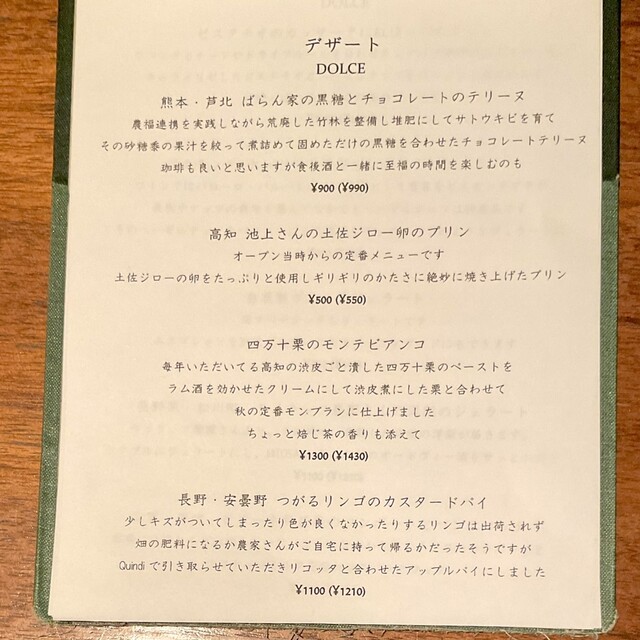 デザート
DOLCE
熊本・芦北 ばらん家の黒糖とチョコレートのテリーヌ
農福連携を実践しながら荒廃した竹林を整備し堆肥にしてサトウキビを育て
その砂糖黍の果汁を絞って煮詰めて固めただけの黒糖を合わせたチョコレートテリーヌ
珈琲も良いと思いますが食後酒と一緒に至福の時間を楽しむのも
¥900 (¥990)
高知 池上さんの土佐ジロー卵のプリン
オープン当時からの定番メニューです
土佐ジローの卵をたっぷりと使用しギリギリのかたさに絶妙に焼き上げたプリン
¥500 (¥550)
四万十栗のモンテビアンコ
毎年いただいてる高知の渋皮ごと漬した四万十栗のペーストを
ラム酒を効かせたクリームにして渋皮煮にした栗と合わせて
秋の定番モンブランに仕上げました
ちょっと焙じ茶の香りも添えて
¥1300 (¥1430)
長野・安曇野 つがるリンゴのカスタードパイ
少しキズがついてしまったり色が良くなかったりするリンゴは出荷されず
畑の肥料になるか農家さんがご自宅に持って帰るかだったそうですが
Quindi で引き取らせていただきリコッタと合わせたアップルパイにしました
¥1100 (¥1210)